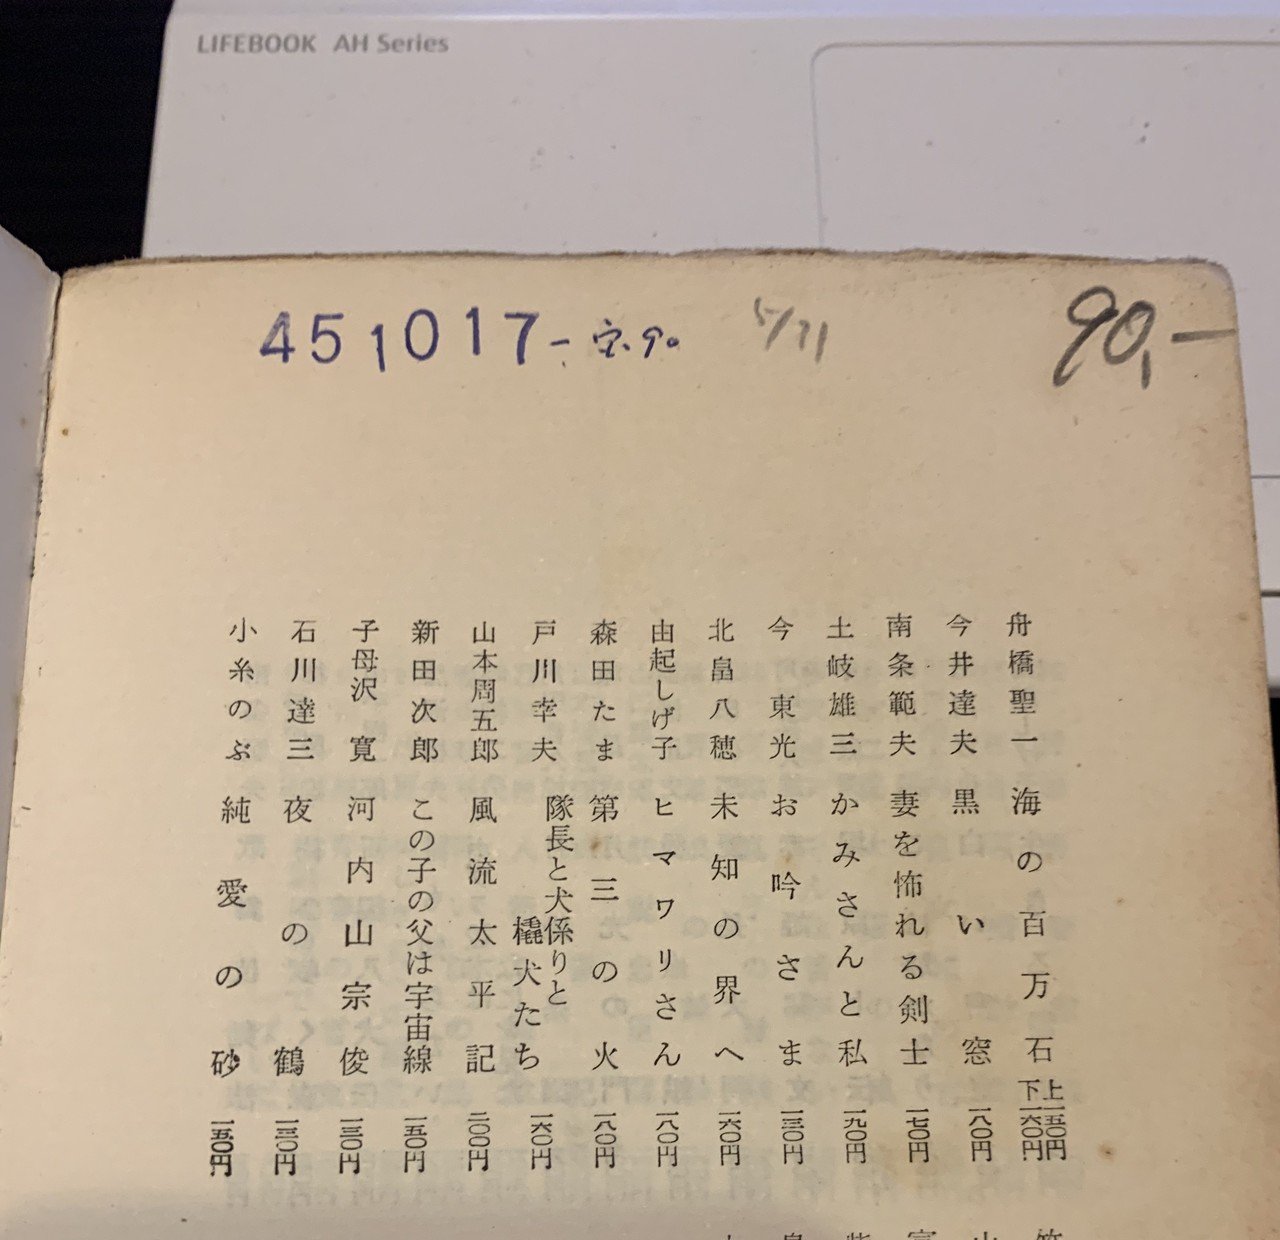 LIFEBOOK AH Series
451017-
5/71
90,-
舟橋聖一 海の百万石 上一五〇円 下一六〇円
今井達夫 黒い窓 一八〇円
南条範夫 妻を怖れる剣士 一七〇円
土岐雄三 かみさんと私 一九〇円
今東光 お吟さま 一三〇円
北畠八穂 未知の界へ 一六〇円
由起しげ子 ヒマワリさん 一八〇円
森田たま 第三の火 一八〇円
戸川幸夫 隊長と犬係りと橇犬たち 一六〇円
山本周五郎 風流太平記 二〇〇円
新田次郎 この子の父は宇宙線 一五〇円
子母沢寛 河内山宗俊 一三〇円
石川達三 夜の鶴 一三〇円
小糸のぶ 純愛の砂 一五〇円